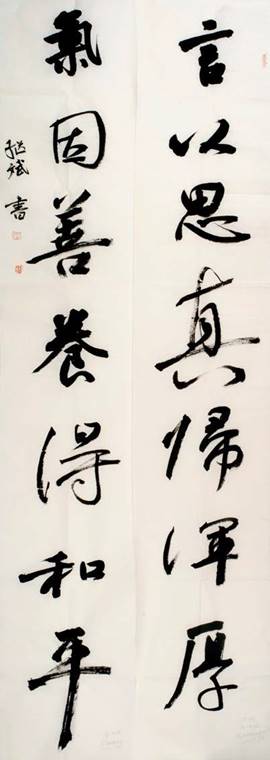 言以思真歸渾厚
氣因善養得和平
書